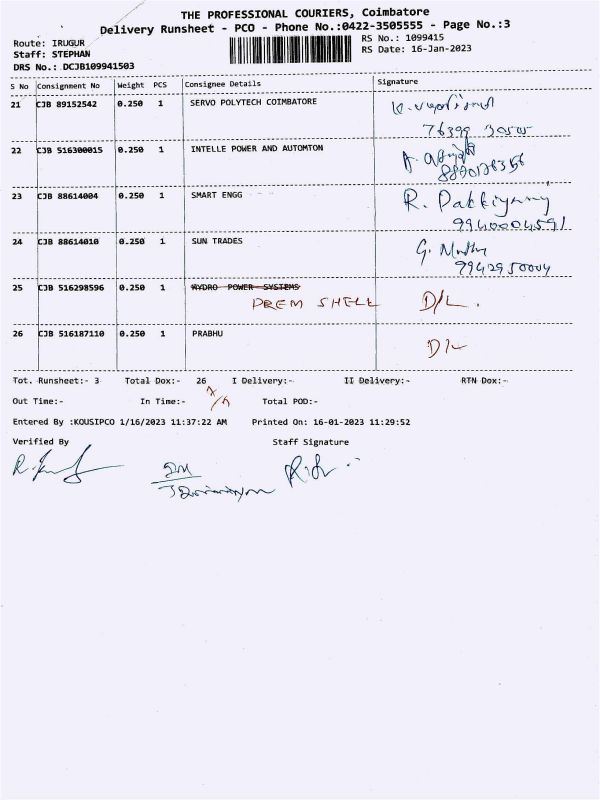 THE PROFESSIONAL COURIERS, Coimbatore
Delivery Runsheet - PCO - Phone No.:0422-3505555 - Page No.:3
Route: IRUGUR
Staff: STEPHAN
DRS No.: DCJB109941503
RS No.: 1099415
RS Date: 16-Jan-2023
S No Consignment No Weight PCS Consignee Details Signature
21 CJB 89152542 0.250 1 SERVO POLYTECH COIMBATORE
22 CJB 516300015 0.250 1 INTELLE POWER AND AUTOMTON
23 CJB 88614004 0.250 1 SMART ENGG R.
9940004591
24 CJB 88614010 0.250 1 SUN TRADES G.
9942950004
25 CJB 516298596 0.250 1 HYDRO POWER SYSTEMS
PREM SHELL D/L.
26 CJB 516187110 0.250 1 PRABHU D/L
Tot. Runsheet:- 3 Total Dox:- 26 I Delivery:- II Delivery:- RTN Dox:-
Out Time:- In Time:- Total POD:-
Entered By :KOUSIPCO 1/16/2023 11:37:22 AM Printed On: 16-01-2023 11:29:52
Verified By Staff Signature